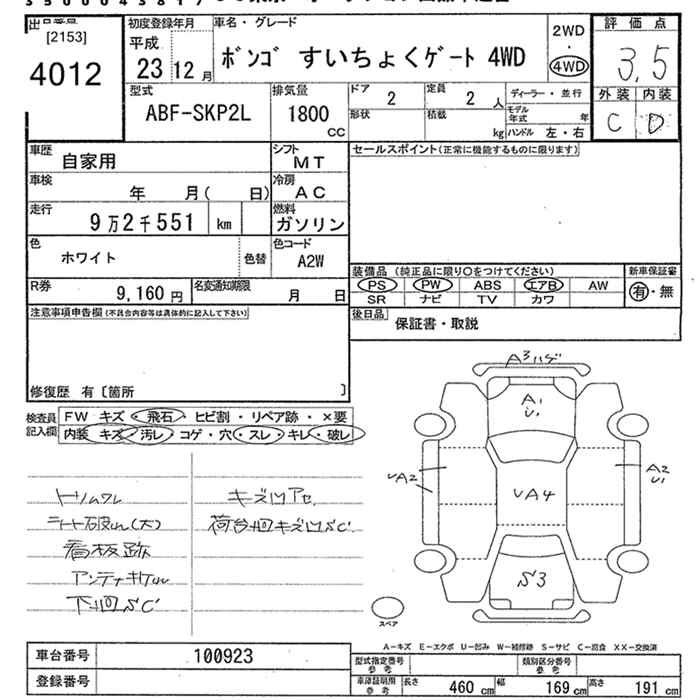 出品番号
[2153]
4012
初度登録年月
平成
23 12 月
車名・グレード
ボンゴ すいちょくゲート 4WD
2WD
・
4WD
評価点
3.5
外装 内装
C D
型式
ABF-SKP2L
排気量
1800
CC
ドア
2
定員
2 人
形状
積載
kg
ディーラー・並行
モデル年式 年
ハンドル 左・右
車歴
自家用
シフト
MT
車検
年 月( 日)
冷房
AC
走行
9万2千551 km
燃料
ガソリン
色
ホワイト
色替
色コード
A2W
R券
9,160 円
名変通知期限
月 日
セールスポイント(正常に機能するものに限ります)
装備品 (純正品に限り〇をつけてください)
PS PW ABS エアB AW
SR ナビ TV カワ
新車保証書
有・無
後日品
保証書・取説
注意事項申告欄(不具合内容等は具体的に記入して下さい)
修復歴 有〔箇所 〕
検査員記入欄
FW キズ・飛石・ヒビ割・リペア跡・×要
内装 キズ・汚レ・コゲ・穴・スレ・キレ・破レ
トリムワレ
シート破れ(大)
看板跡
アンテナキケル
下回SC
キズ凹アセ
荷台廻キズ凹SC
A3ハゲ
A1
U1
UA2
UA4
A2
U1
S3
スペア
A-キズ E-エクボ U-凹み W-補修跡 S-サビ C-腐食 XX-交換済
車台番号
100923
登録番号
型式指定番号
参考
類別区分番号
参考
車庫証明用
参考
長さ 460 cm 幅 169 cm 高さ 191 cm